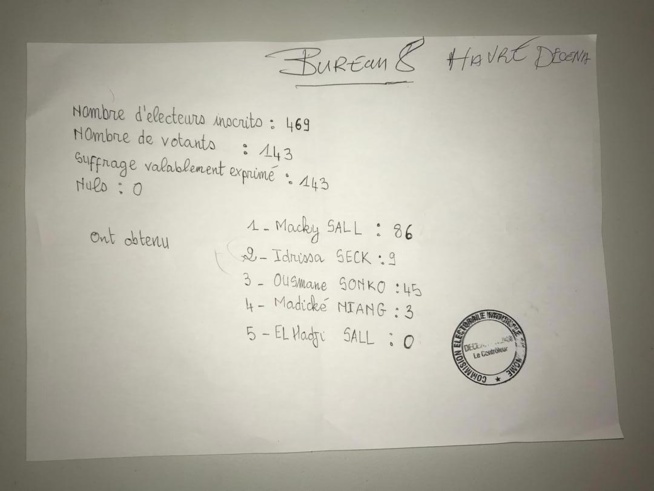 BUREAU 8 HAVRE DECENA
Nombre d'électeurs inscrits : 469
NOmbre de votants : 143
Suffrage valablement exprimé : 143
Nuls : 0
Ont obtenu
1 - Macky SALL : 86
2 - Idrissa SECK : 9
3 - OUSmane SONKO : 45
4 - Madické NIANG : 3
5 - EL Hadji SALL : 0
COMMISION ELECTORALE
DECENA
Le Contrôleur